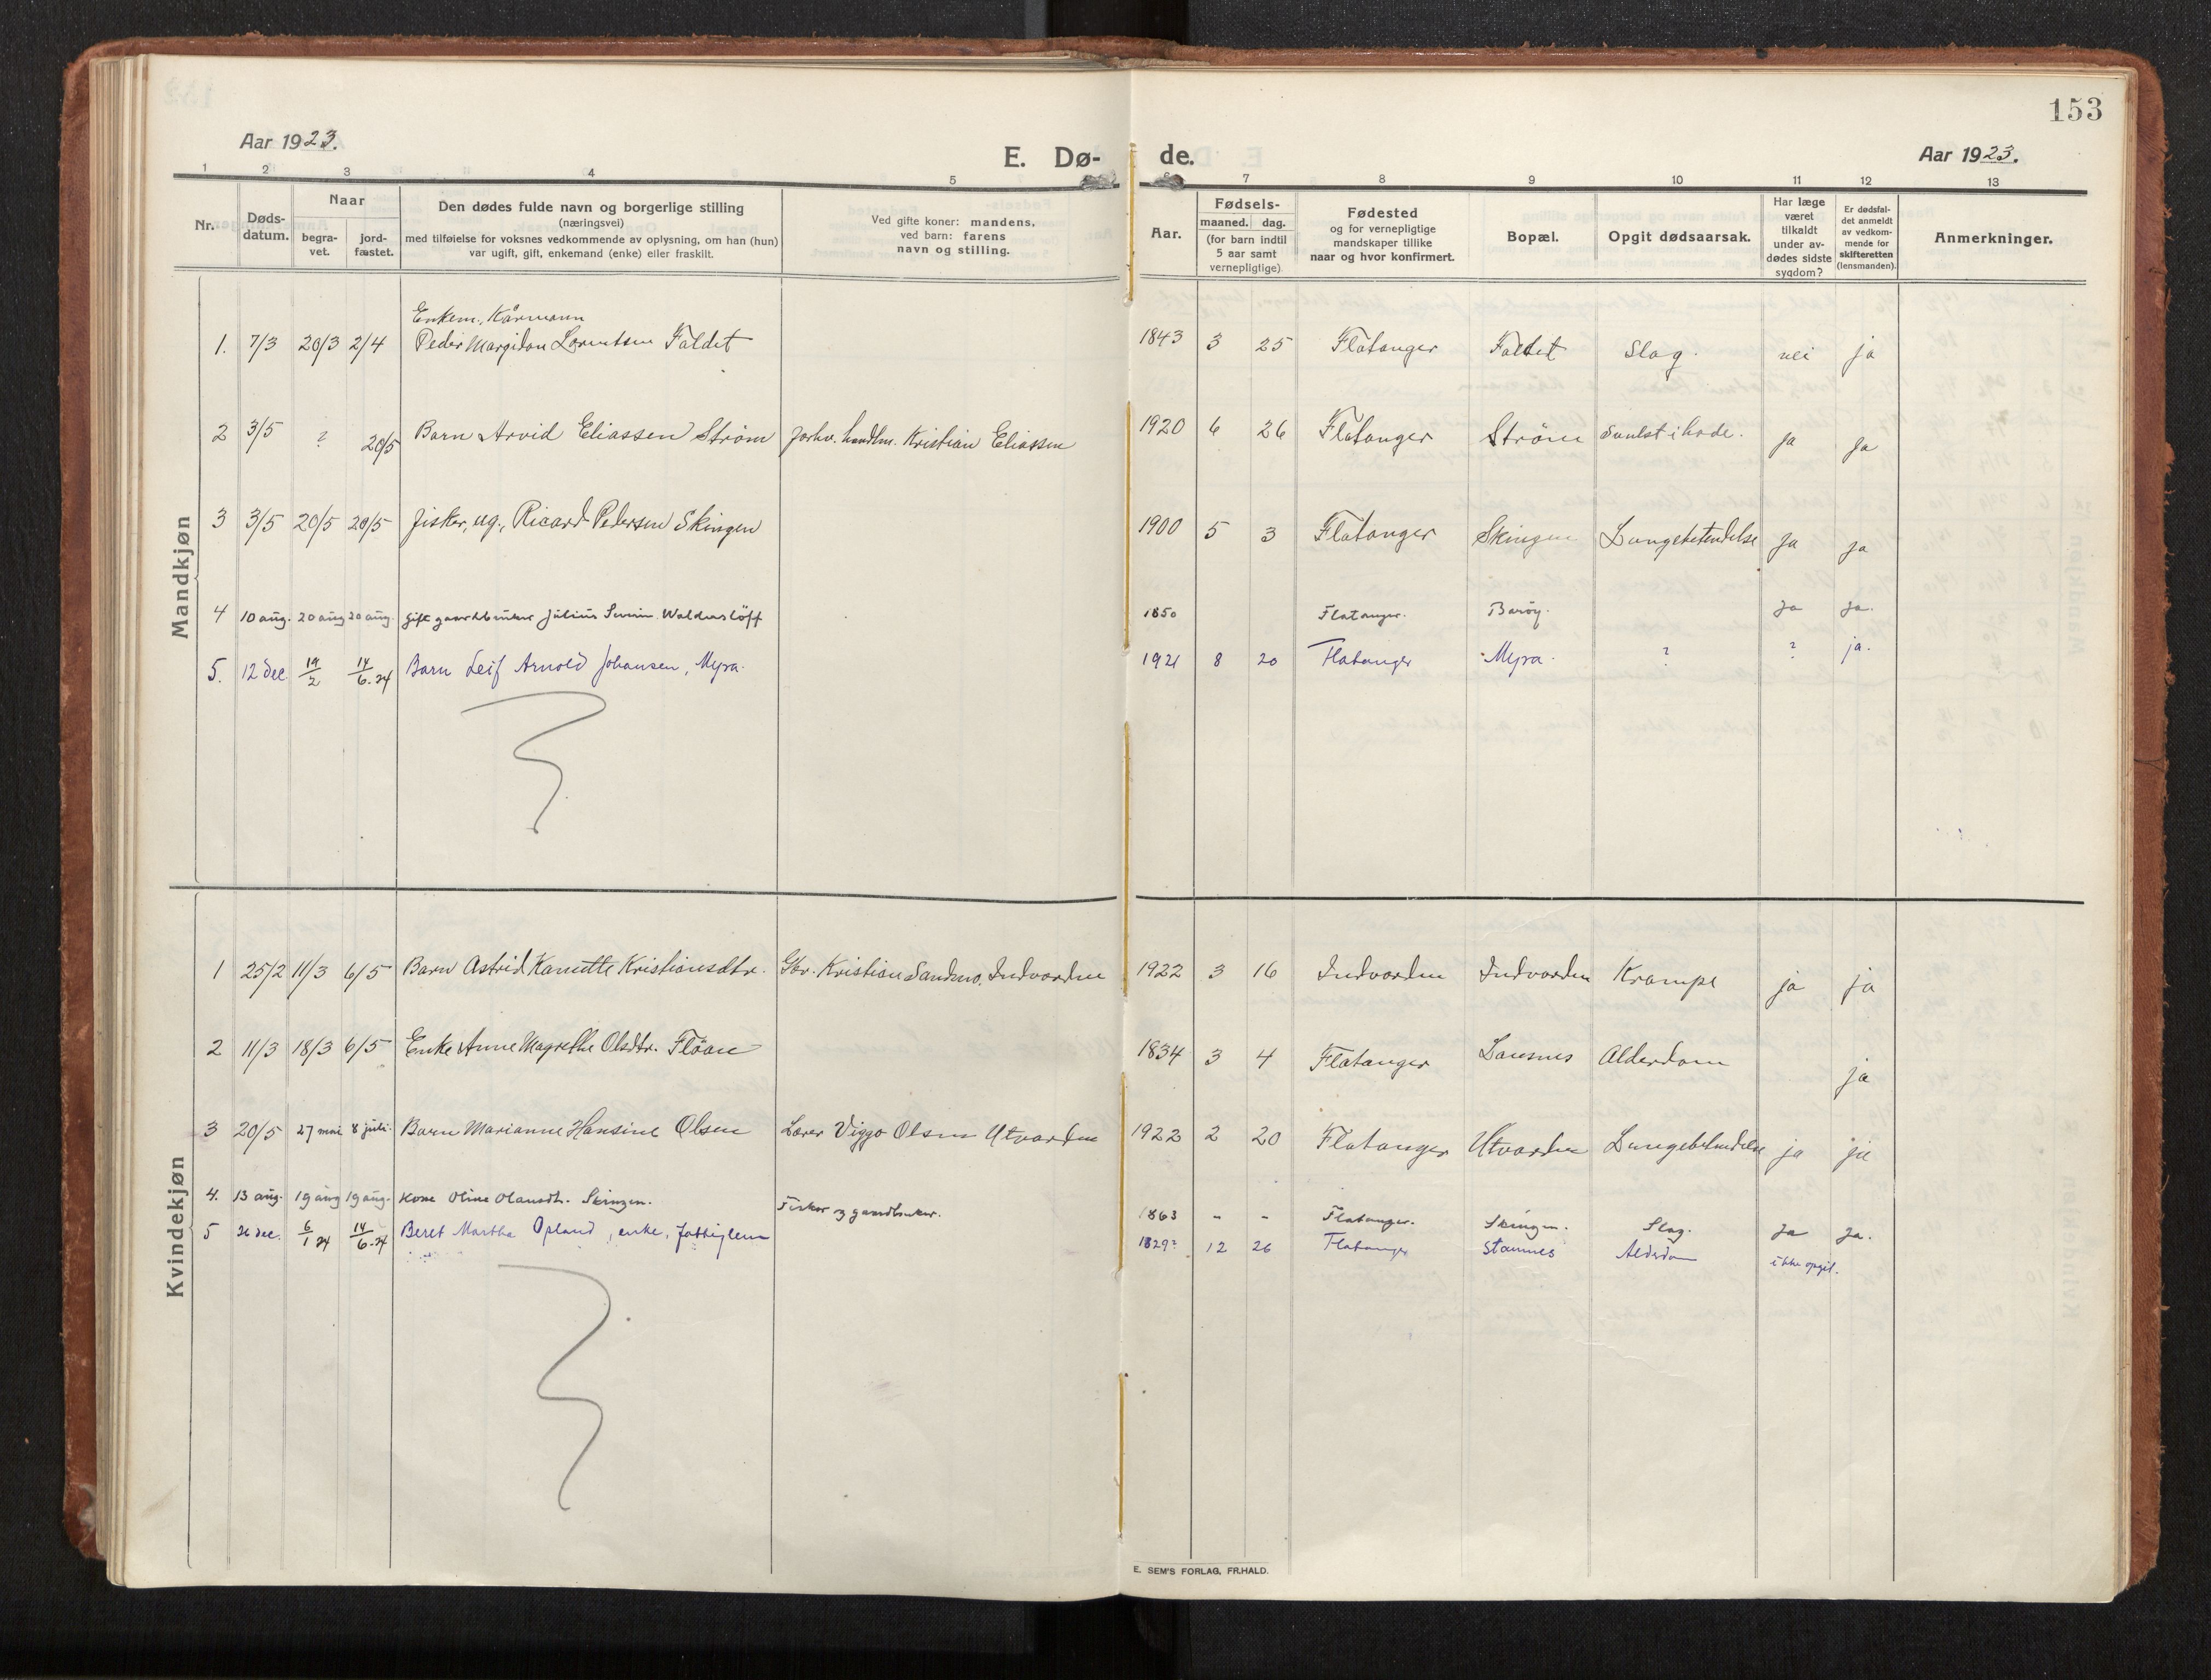 153
Aar 1923.
E. Dø-
de.
Aar 1923.
1 2 3 4 5 7 8 9 10 11 12 13
Nr.
Døds-
datum.
Naar
begra-
vet.
jord-
fæstet.
Den dødes fulde navn og borgerlige stilling
(næringsvei)
med tilføielse for voksnes vedkommende av oplysning, om han (hun)
var ugift, gift, enkemand (enke) eller fraskilt.
Ved gifte koner: mandens,
ved barn: farens
navn og stilling.
Aar.
Fødsels-
maaned. dag.
(for barn indtil
5 aar samt
vernepligtige)
Fødested
og for vernepligtige
mandskaper tillike
naar og hvor konfirmert.
Bopæl.
Opgit dødsaarsak.
Har læge
været
tilkaldt
under av-
dødes sidste
sygdom?
Er dødsfal-
det anmeldt
av vedkom-
mende for
skifteretten
(lensmanden).
Anmerkninger.
Mandkjøn
Enkem., Kårmann
1. 7/3 20/3 2/4 Peder Margidon Lorentsen Faldet 1843 3 25 Flatanger Faldet Slag. nei ja
2 3/5 ? 20/5 Barn Arvid Eliassen Strøm forhv. handlm. Kristian Eliassen 1920 6 26 Flatanger Strøm Svulst i hode. ja ja
3 3/5 20/5 20/5 fisker, ug., Ricard Pedersen Skingen 1900 5 3 Flatanger Skingen Lungebetendelse ja ja
4 10 aug. 20 aug 20 aug. gift gaardbruker Julius Waldersløff 1850 Flatanger. Barøy. ja ja.
5. 12 dec. 19/2 14/6.24 Barn Leif Arnold Johansen, Myra. 1921 8 20 Flatanger Myra. ? ? ja.
Kvindekjøn
1 25/2 11/3 6/5 Barn Astrid Kanutte Kristiansdtr. Gbr. Kristian Sandmo, Indvorden 1922 3 16 Indvorden Indvorden Krampe ja ja
2 11/3 18/3 6/5 Enke Anne Magrethe Olsdtr. Fløan 1834 3 4 Flatanger Lausnes Alderdom ja
3 20/5 27 mai 8 juli. Barn Marianne Hansine Olsen Lærer Viggo Olsen Utvorden 1922 2 20 Flatanger Utvorden Lungebetendelse ja ja
4. 13 aug. 19 aug 19 aug. Kone Oline Olausdtr. Skingen. Fisker og gaardbruker. 1863 - - Flatanger. Skingen. Slag. Ja Ja.
5 26 dec. 6/1 24 14/6.24 Beret Martha Opland, enke, fattiglem 1829? 12 26 Flatanger Stamnes Alderdom ikke opgit.
E. SEM'S FORLAG, FR.HALD.